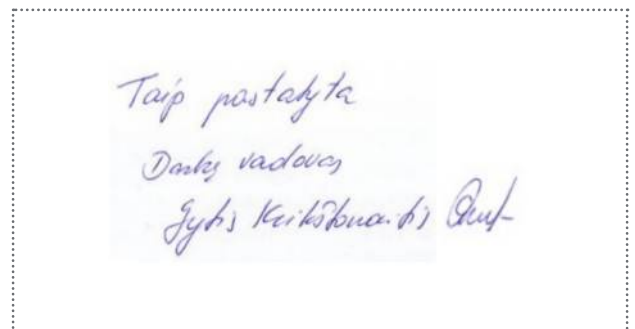 Taip pastatyta
Darbų vadovas
Gytis Krikštonaitis